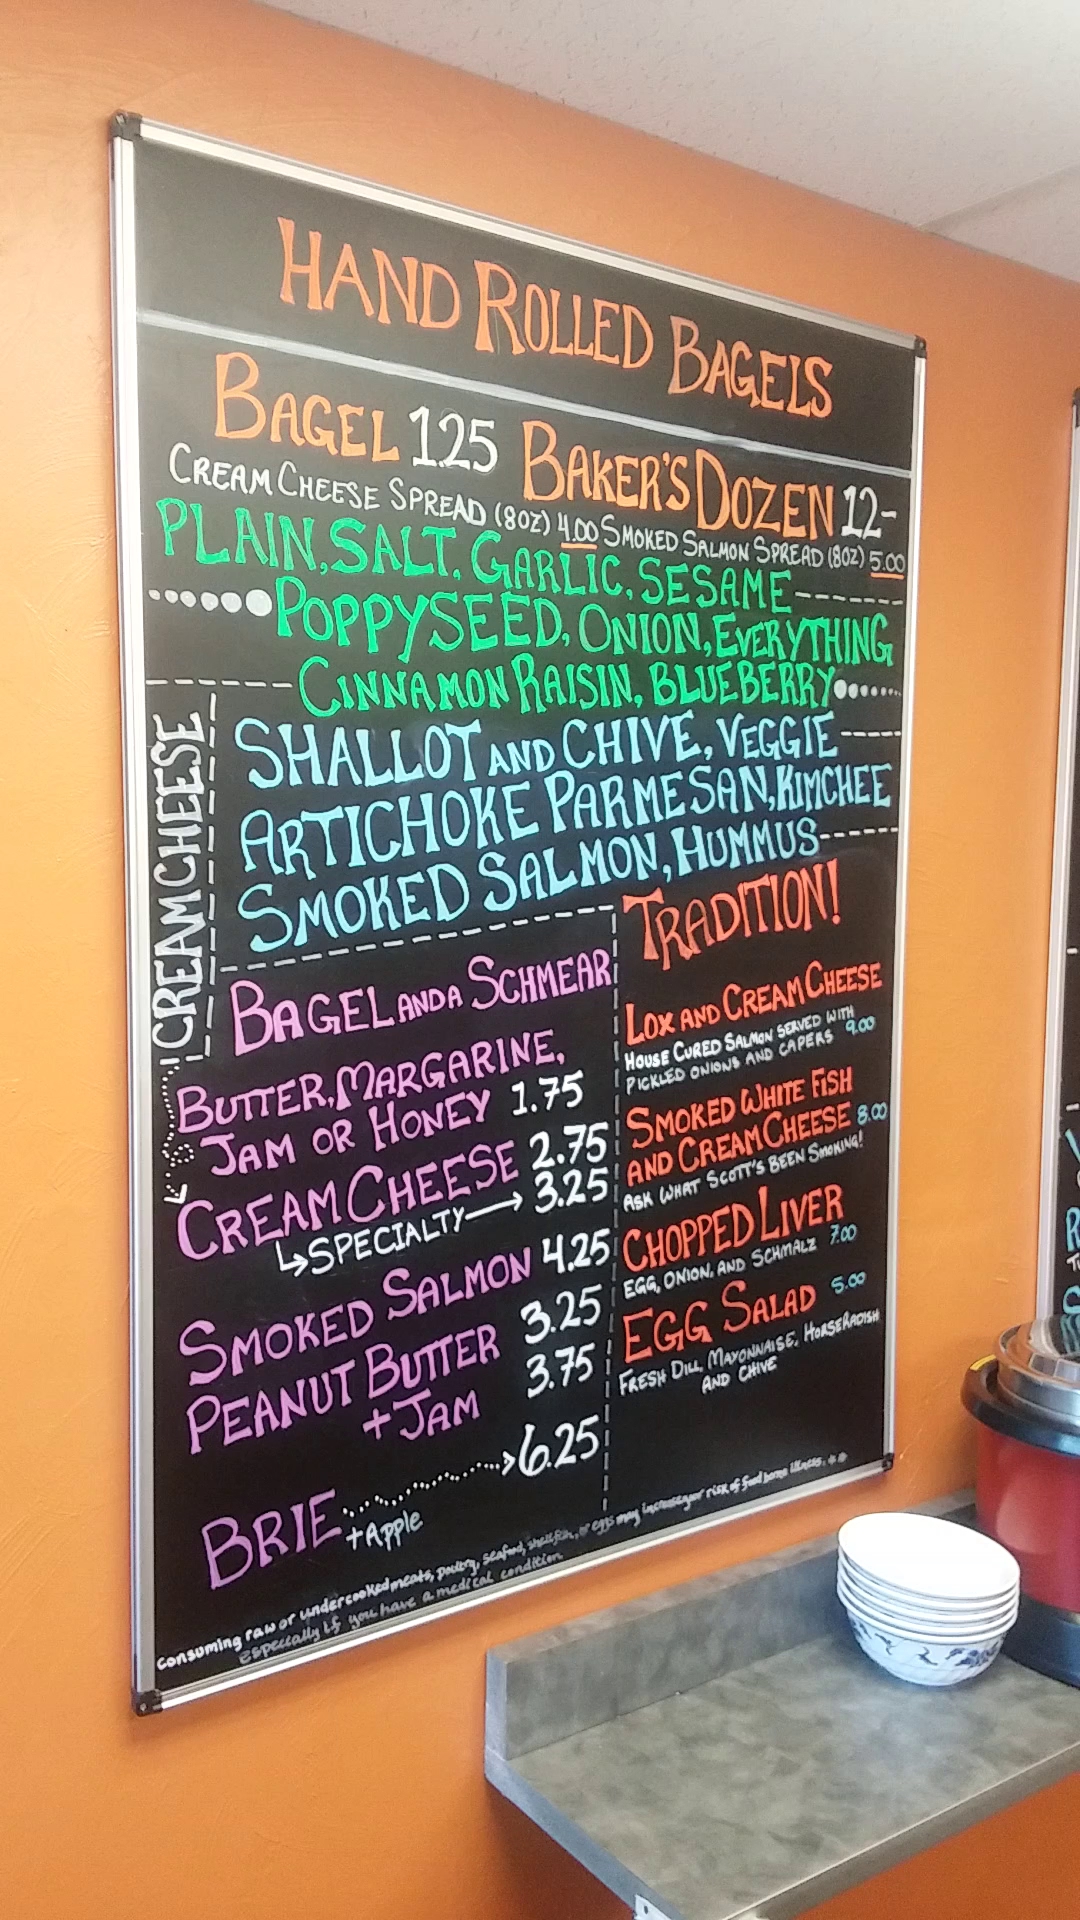 HAND ROLLED BAGELS
BAGEL 1.25 BAKER'S DOZEN 12-
CREAM CHEESE SPREAD (8OZ) 4.00 SMOKED SALMON SPREAD (8OZ) 5.00
PLAIN, SALT, GARLIC, SESAME
POPPYSEED, ONION, EVERYTHING
CINNAMON RAISIN, BLUEBERRY
CREAMCHEESE
SHALLOT AND CHIVE, VEGGIE
ARTICHOKE PARMESAN, KIMCHEE
SMOKED SALMON, HUMMUS
BAGEL AND A SCHMEAR
BUTTER, MARGARINE,
JAM OR HONEY 1.75
CREAM CHEESE 2.75
↳SPECIALTY→ 3.25
SMOKED SALMON 4.25
PEANUT BUTTER 3.25
+JAM 3.75
BRIE 6.25
+Apple
TRADITION!
LOX AND CREAM CHEESE
HOUSE CURED SALMON SERVED WITH
PICKLED ONIONS AND CAPERS 9.00
SMOKED WHITE FISH
AND CREAM CHEESE 8.00
ASK WHAT SCOTT'S BEEN SMOKING!
CHOPPED LIVER
EGG, ONION, AND SCHMALZ 7.00
EGG SALAD 5.00
FRESH DILL, MAYONNAISE, HORSERADISH
AND CHIVE
Consuming raw or undercooked meats, poultry, seafood, shellfish, or eggs may increase your risk of food borne illness. **
Especially if you have a medical condition